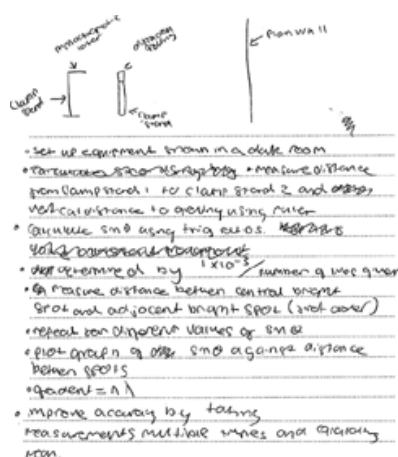 monochromatic laser
diffraction grating
plain wall
clamp stand
clamp stand
• set up equipment shown in a dark room
• measure distance
from clamp stand 1 to clamp stand 2 and
vertical distance to grating using ruler
• calculate sinθ using trig ratios.
• determined by 1×10⁻³ / number of lines given
• measure distance between central bright
spot and adjacent bright spot
• repeat for different values of sinθ
• plot graph of sinθ against distance
between spots
• gradient = nλ
• improve accuracy by taking
measurements multiple times and
mean.